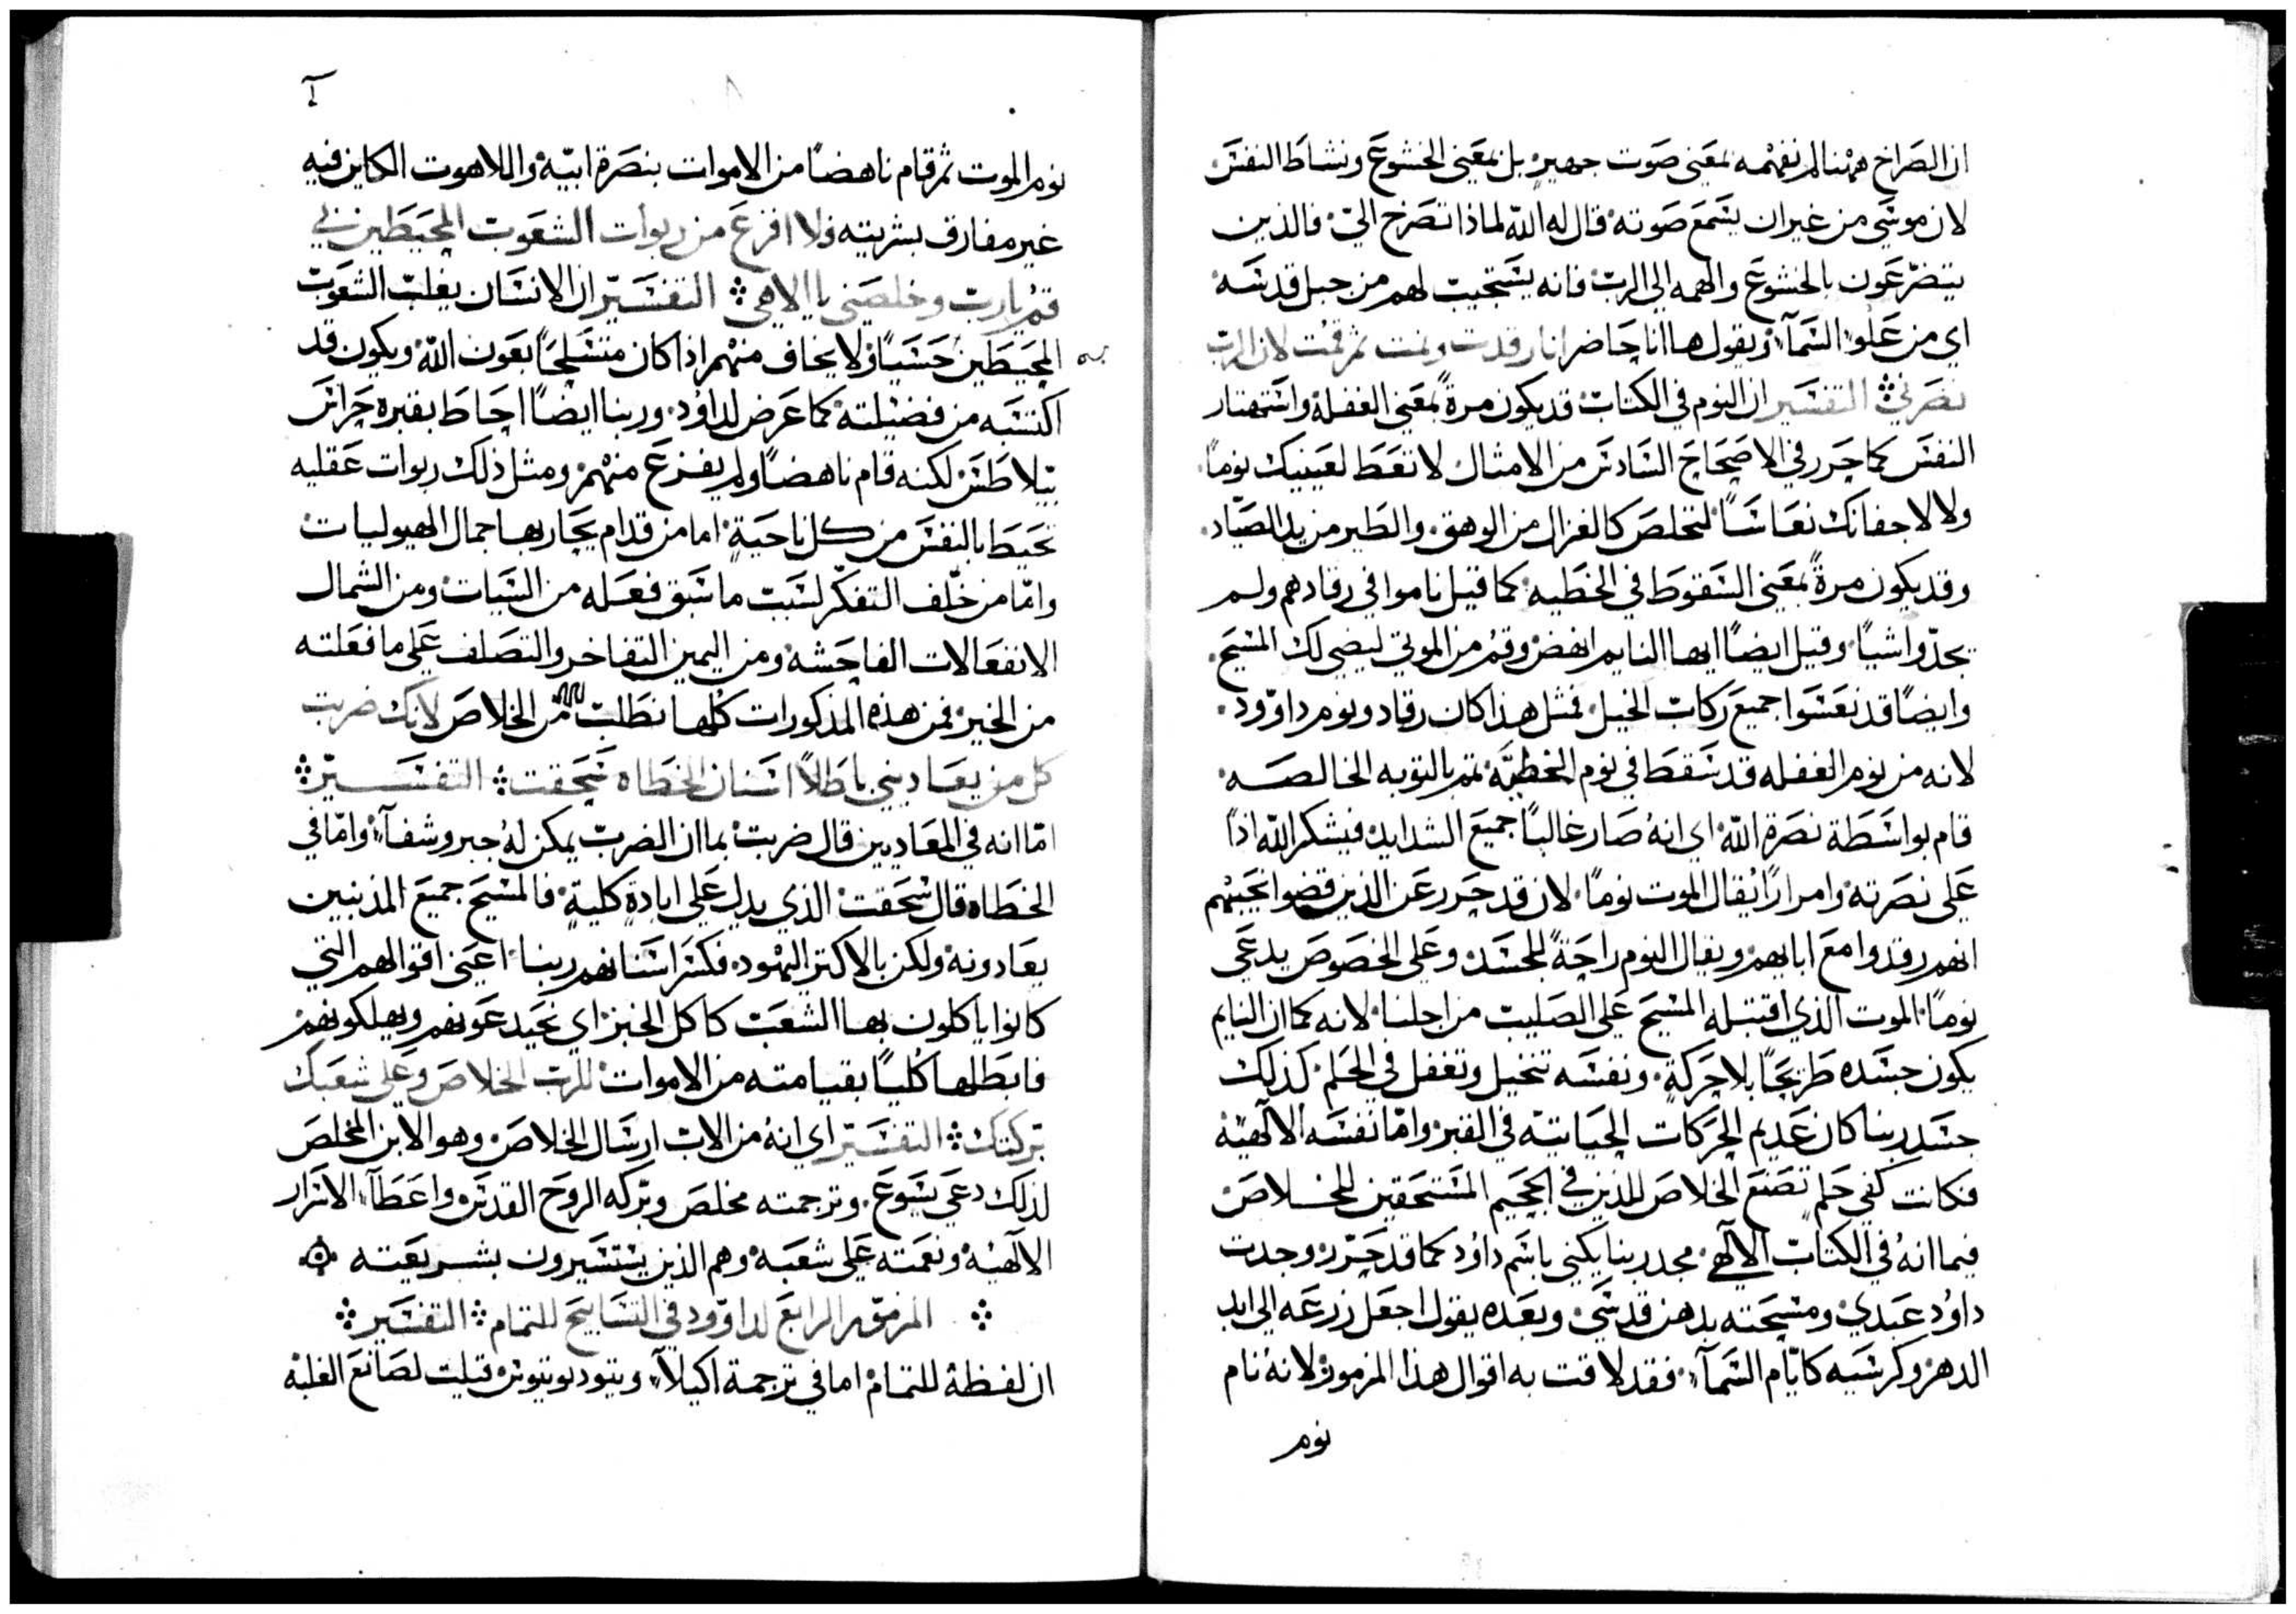 ان الصراخ ههنا لم نفهمه بمعنى صوت جهير بل بمعنى الخشوع ونشاط النفس
لان موسى من غير ان يسمع صوته قال له الله لماذا تصرخ اليّ فالذين
يتضرعون بالخشوع والهمه الى الرب فانه يستجيب لهم من جبل قدسه
اي من علو السمآء ويقول ها انا حاضر انا رقدت ونمت ثم قمت لان الرب
نصرني التفسير ان النوم في الكتاب قد يكون مرةً بمعنى الغفلة واستهتار
النفس كما حرر في الاصحاح السادس من الامثال لا تعط لعينيك نومًا
ولا لاجفانك نعاسًا لتخلص كالغزال من الوهق والطير من يد الصياد
وقد يكون مرةً بمعنى السقوط في الخطيه كما قيل ناموا في رقادهم ولم
يجدّوا شيًا وقيل ايضًا ايها النايم انهض وقم من الموتى ليضي لك المسيح
وايضًا قد نعسوا جميع ركاب الخيل فمثل هذا كان رقاد ونوم داوود
لانه من نوم الغفله قد سقط في نوم الخطيّه ثم بالتوبه الخالصه
قام بواسطة نصرة الله اي انهُ صار غالبًا جميع الشدايد فيشكر الله اذًا
على نصرته وامرارًا يُقال الموت نومًا لان قد حرر عن الذين قضوا نحبهم
انهم رقدوا مع ابايهم ويقال النوم راحةً للجسد وعلى الخصوص يدعى
نومًا الموت الذي اقتبله المسيح على الصليب من اجلنا لانه كما ان النايم
يكون جسده طريحًا بلا حركةٍ ونفسه تتخيل وتغفل في الحلم كذلك
جسد ربنا كان عديم الحركات الحياتيه في القبر وامّا نفسه الالهيه
فكانت كفي حلم تصنع الخلاص للذين في الجحيم المستحقين للخلاص
فيما انهُ في الكتاب الالهي مجد ربنا يكنى باسم داوُد كما قد حرّر وجدت
داوُد عبدي ومسحته بدهن قدسي وبعده يقول اجعل زرعه الى ابد
الدهر وكرسيه كايّام السمآء فقد لاقت به اقوال هذا المزمور لانهُ نام
نوم
نوم الموت ثم قام ناهضًا من الاموات بنصرة ابيه واللاهوت الكاين فيه
غير مفارق بشريته فلا افزع من ربوات الشعوب المحيطين بي
قم يارب وخلصني يا الاهي التفسير ان الانسان يغلب الشعوب
المحيطين حسيًا ولا يخاف منهم اذا كان متسلحًا بعون الله ويكون قد
اكتسبه من فضيلته كما عرض لداوُد وربنا ايضًا احاط بقبره حراس
بيلاطس لكنه قام ناهضًا ولم يفزع منهم ومثل ذلك ربوات عقليه
تحيط بالنفس من كل ناحيةٍ اما من قدام يحاربها جمال الهيوليات
وامّا من خلف التفكّر لسبب ما سبق فعله من السيات ومن الشمال
الانفعالات الفاحشه ومن اليمين التفاخر والتصلف على ما فعلته
من الخير فمن هذه المذكورات كلها نطلب من الخلاص لانك ضربت
كل من يعاديني باطلاً اسنان الخطاه سحقت التفسير
امّا انه في المعاديين قال ضربت بما ان الضرب يمكن لهُ جبر وشفآء وامّا في
الخطاه قال سحقت الذي يدل على ابادةٍ كليةٍ فالمسيح جميع المذنبين
يعادونه ولكن بالاكثر اليهود فكسر اسنانهم ربنا اعني اقوالهم التي
كانوا ياكلون بها الشعب كاكل الخبز اي يخدعونهم ويهلكونهم
فابطلها كليًا بقيامته من الاموات للرب الخلاص وعلى شعبك
بركتك التفسير اي انهُ من الاب ارسال الخلاص وهو الابن المخلص
لذلك دعى يسوع وترجمته مخلص وبركه الروح القدس واعطآء الاسرار
الالهيه ونعمته على شعبه وهم الذين يستسيرون بشريعته
المزمور الرابع لداوود في التسابيح للتمام التفسير
ان لفظة للتمام اما في ترجمة اكيلآء وتيودوتيوس قيلت لصانع الغلبه